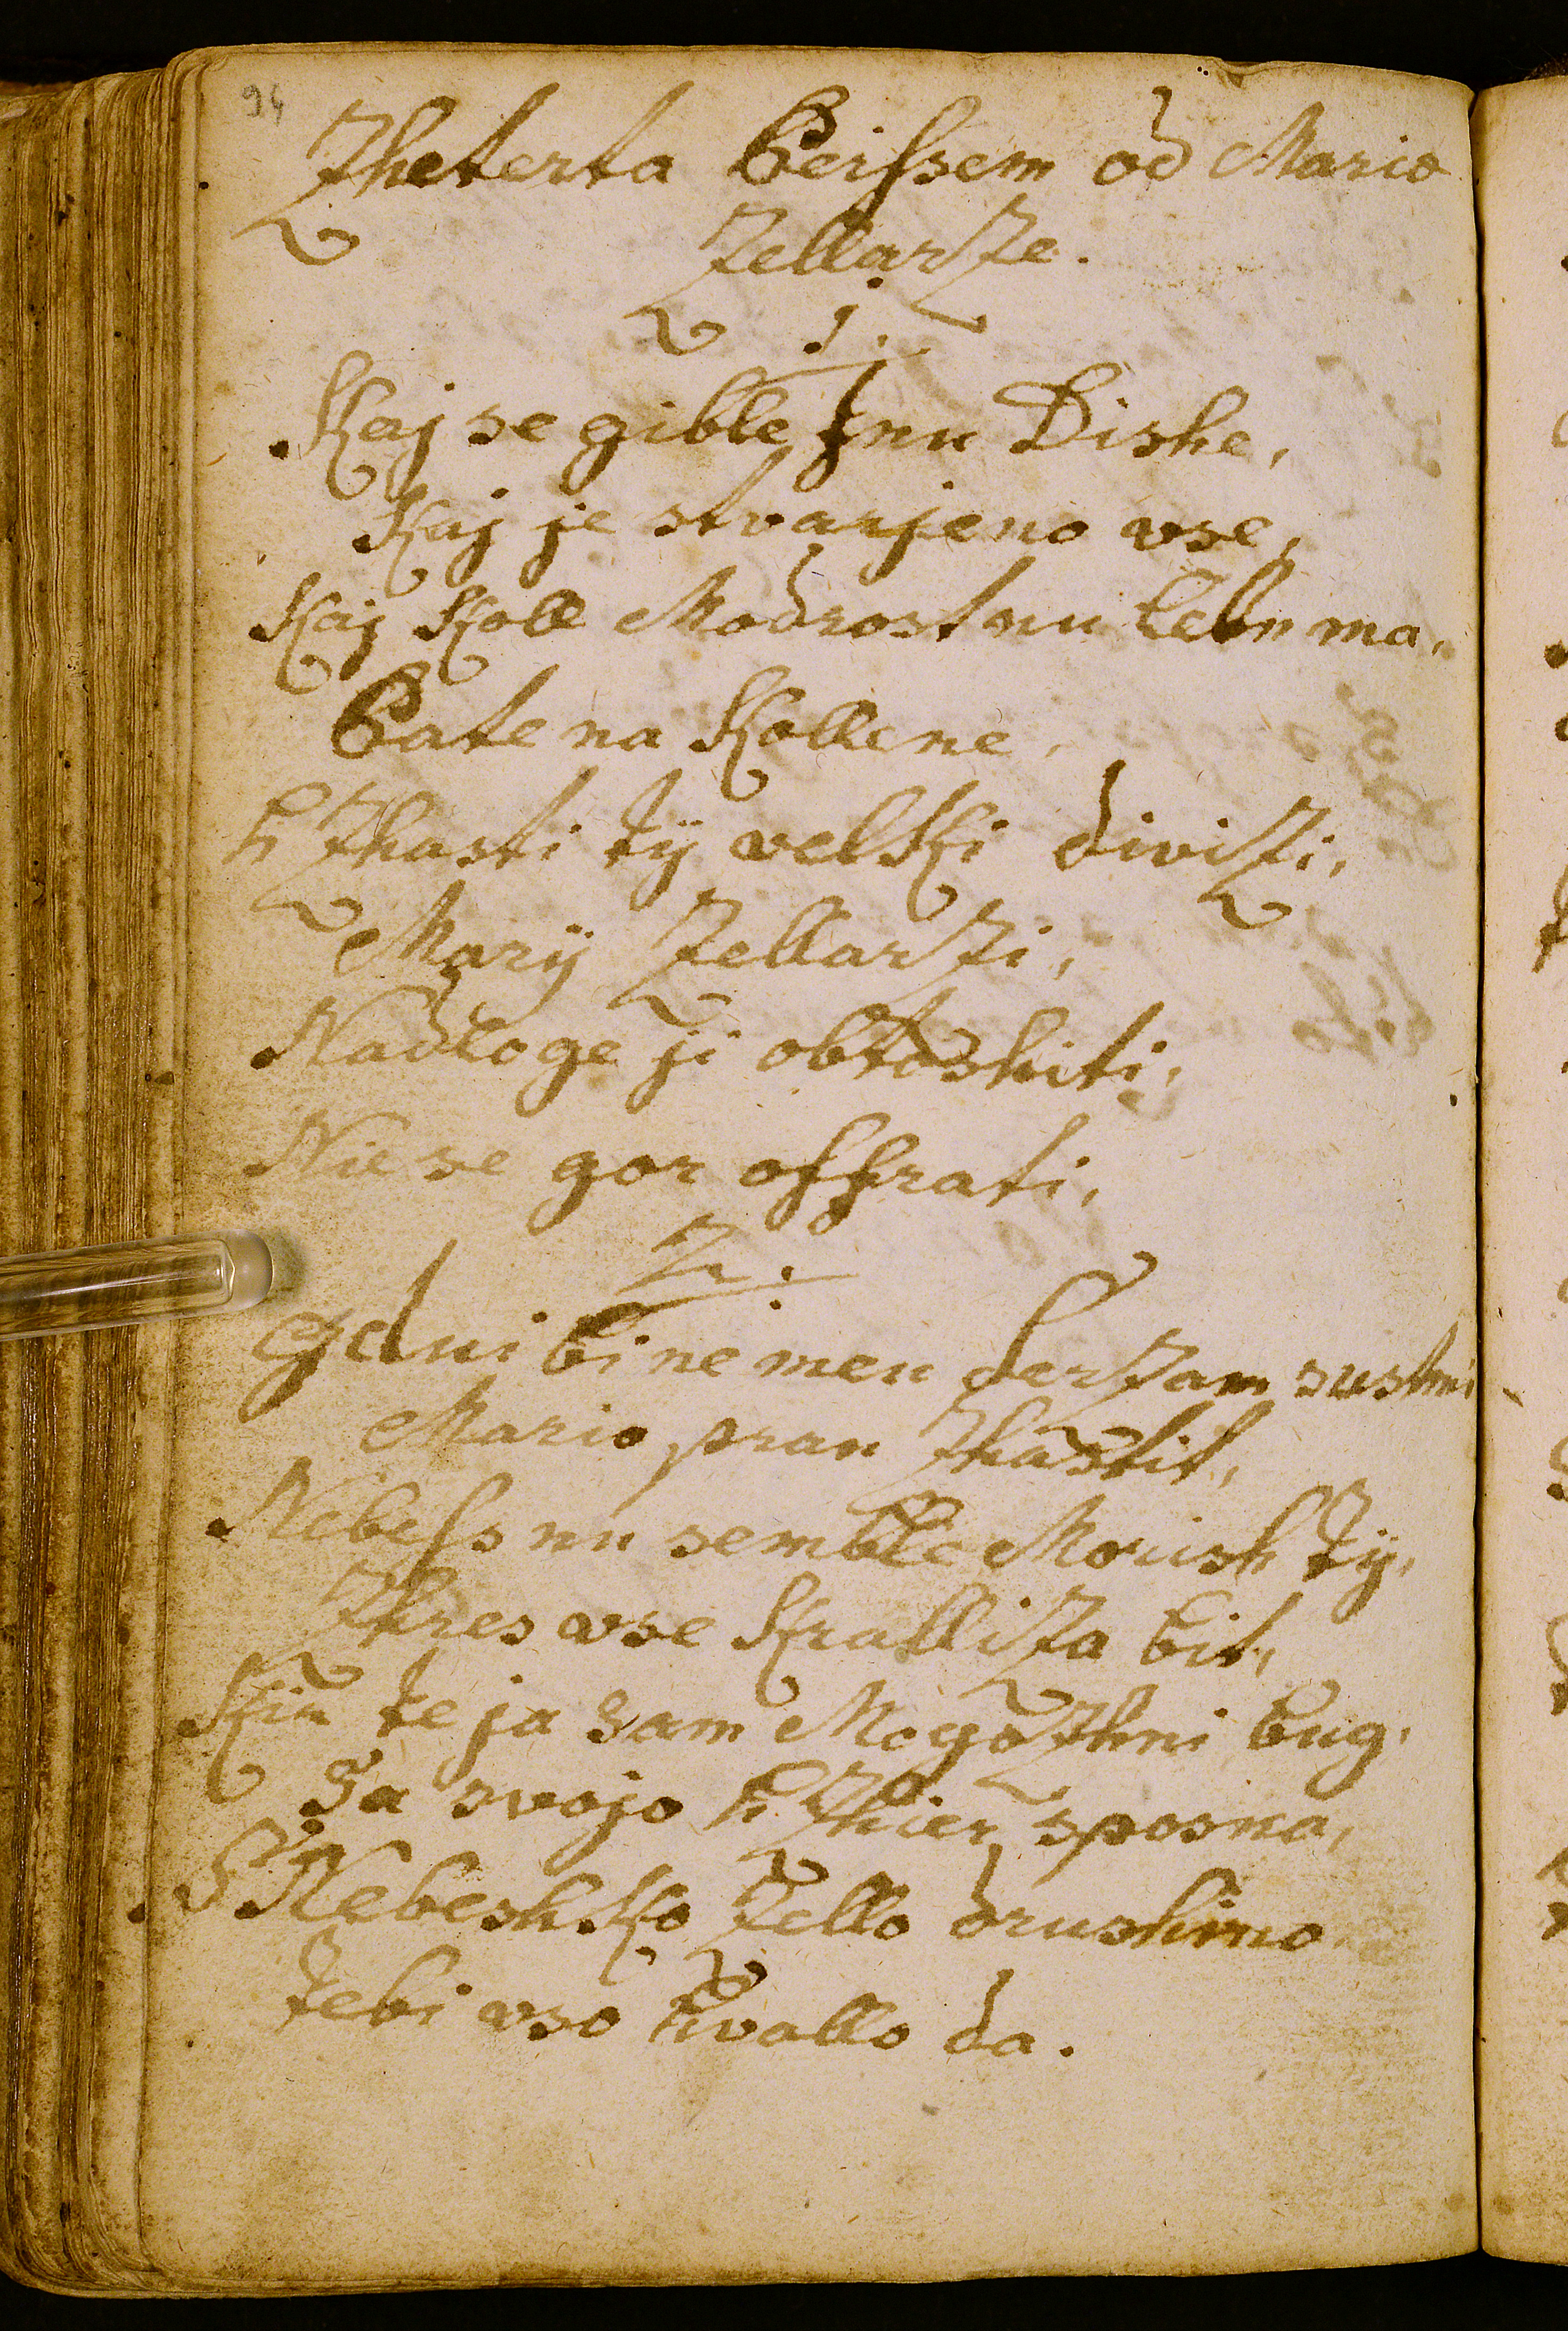 94
Zheterta Peißem od Mario
Zellarze.
1.
Kaj se gible jnu Dishe,
Kaj je stvarjeno vse,
Kaj Koll Modrost nu lebn ma,
Pate na Kollene,
h Zhasti tÿ velki divizi,
Marÿ Zellarzi,
Nadloge ji obtoshiti,
Nie se gor offrati,
2.
Gdui bi ne meu serzam sushni
Mario prau Zhastit,
Nebeſs nu semble Morish tÿ,
Zhres vse Kralliza bit,
Kir te ja sam Mogozhni bug,
Sa svojo h Zhier sposna,
S Nebeshko Zello drushino
Tebi vso hvallo da.